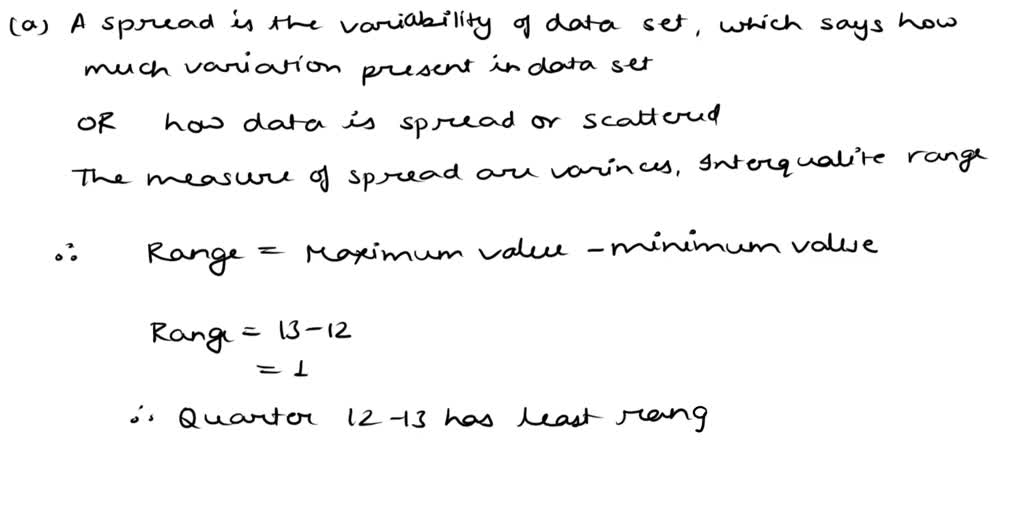 (a) A spread is the variability of data set, which says how
much variation present in data set
OR how data is spread or scattered
The measure of spread are varinces, Interqualite range
∴ Range = Maximum value - minimum value
Range = 13-12
= 1
∴ Quarter 12-13 has least rang